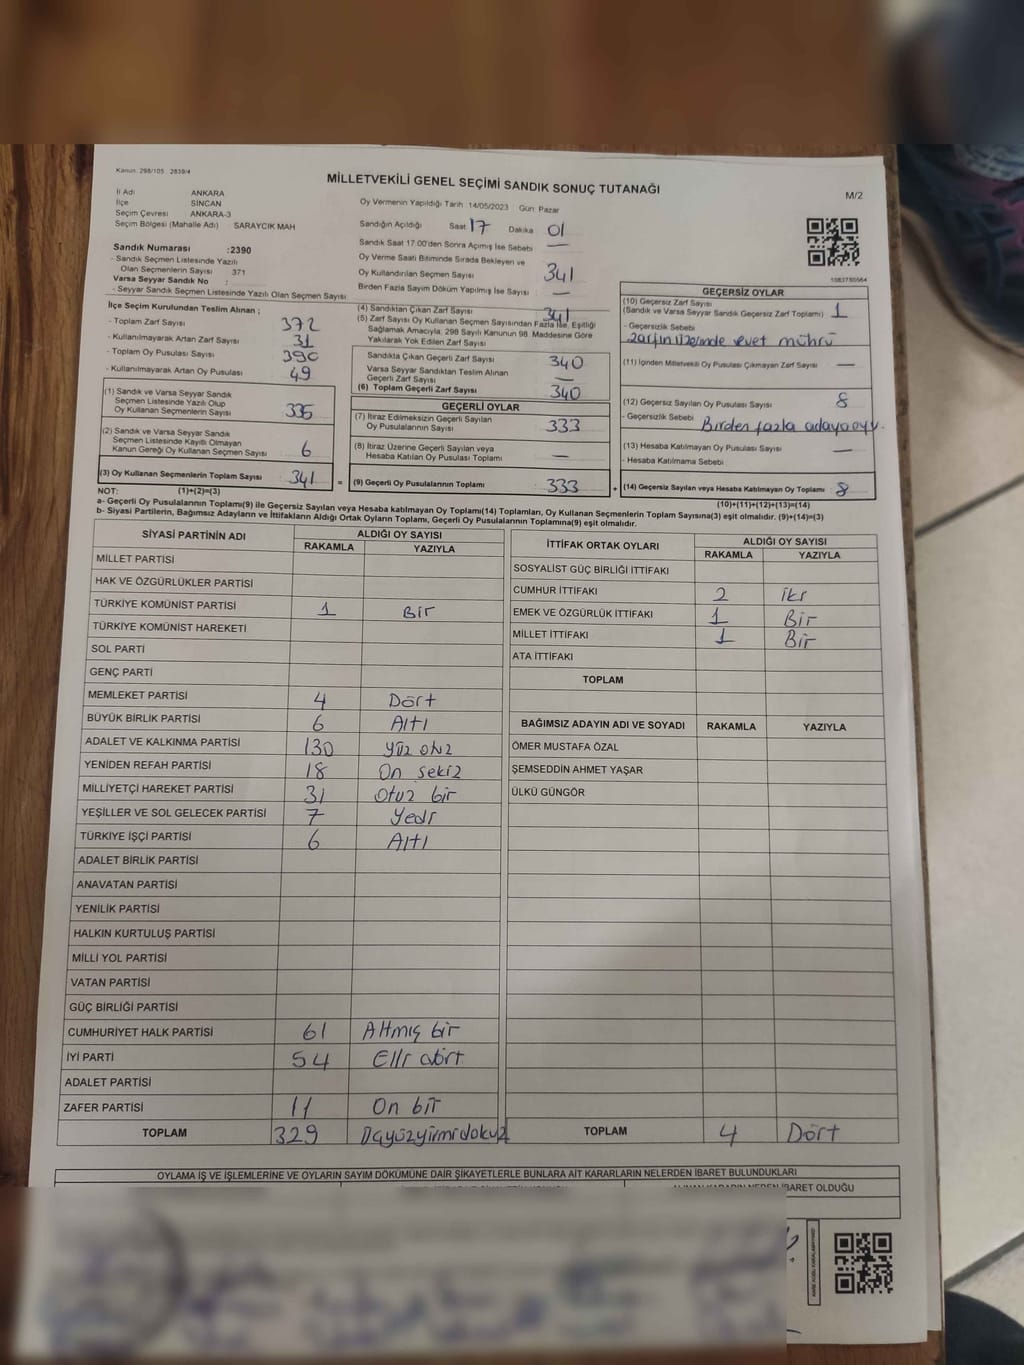 Kanun: 298/105 2839/4
MİLLETVEKİLİ GENEL SEÇİMİ SANDIK SONUÇ TUTANAĞI
M/2
İl Adı ANKARA
İlçe SİNCAN
Seçim Çevresi ANKARA-3
Seçim Bölgesi (Mahalle Adı) SARAYCIK MAH
Sandık Numarası :2390
- Sandık Seçmen Listesinde Yazılı
Olan Seçmenlerin Sayısı 371
Varsa Seyyar Sandık No :
- Seyyar Sandık Seçmen Listesinde Yazılı Olan Seçmen Sayısı
Oy Vermenin Yapıldığı Tarih 14/05/2023 Gün: Pazar
Sandığın Açıldığı Saat 17 Dakika 01
Sandık Saat 17:00'den Sonra Açımış İse Sebebi —
Oy Verme Saati Bitiminde Sırada Bekleyen ve
Oy Kullandırılan Seçmen Sayısı 341
Birden Fazla Sayım Döküm Yapılmış İse Sayısı —
İlçe Seçim Kurulundan Teslim Alınan ;
- Toplam Zarf Sayısı 372
- Kullanılmayarak Artan Zarf Sayısı 31
- Toplam Oy Pusulası Sayısı 390
- Kullanılmayarak Artan Oy Pusulası 49
(1) Sandık ve Varsa Seyyar Sandık
Seçmen Listesinde Yazılı Olup
Oy Kullanan Seçmenlerin Sayısı 335
(2) Sandık ve Varsa Seyyar Sandık
Seçmen Listesinde Kayıtlı Olmayan
Kanun Gereği Oy Kullanan Seçmen Sayısı 6
(3) Oy Kullanan Seçmenlerin Toplam Sayısı 341
(1)+(2)=(3)
(4) Sandıktan Çıkan Zarf Sayısı 341
(5) Zarf Sayısı Oy Kullanan Seçmen Sayısından Fazla İse, Eşitliği
Sağlamak Amacıyla, 298 Sayılı Kanunun 98. Maddesine Göre
Yakılarak Yok Edilen Zarf Sayısı
Sandıkta Çıkan Geçerli Zarf Sayısı 340
Varsa Seyyar Sandıktan Teslim Alınan
Geçerli Zarf Sayısı —
(6) Toplam Geçerli Zarf Sayısı 340
GEÇERLİ OYLAR
(7) İtiraz Edilmeksizin Geçerli Sayılan
Oy Pusulalarının Sayısı 333
(8) İtiraz Üzerine Geçerli Sayılan veya
Hesaba Katılan Oy Pusulası Toplamı —
= (9) Geçerli Oy Pusulalarının Toplamı 333
1083780564
GEÇERSİZ OYLAR
(10) Geçersiz Zarf Sayısı
(Sandık ve Varsa Seyyar Sandık Geçersiz Zarf Toplamı) 1
- Geçersizlik Sebebi
zarfın üzerinde evet mührü
(11) İçinden Milletvekili Oy Pusulası Çıkmayan Zarf Sayısı —
(12) Geçersiz Sayılan Oy Pusulası Sayısı 8
- Geçersizlik Sebebi Birden fazla adaya oy
(13) Hesaba Katılmayan Oy Pusulası Sayısı —
- Hesaba Katılmama Sebebi
+ (14) Geçersiz Sayılan veya Hesaba Katılmayan Oy Toplamı 8
(10)+(11)+(12)+(13)=(14)
NOT:
a- Geçerli Oy Pusulalarının Toplamı(9) ile Geçersiz Sayılan veya Hesaba Katılmayan Oy Toplamı(14) Toplamları, Oy Kullanan Seçmenlerin Toplam Sayısına(3) eşit olmalıdır. (9)+(14)=(3)
b- Siyasi Partilerin, Bağımsız Adayların ve İttifakların Aldığı Ortak Oyların Toplamı, Geçerli Oy Pusulalarının Toplamına(9) eşit olmalıdır.
SİYASİ PARTİNİN ADI ALDIĞI OY SAYISI
RAKAMLA YAZIYLA
MİLLET PARTİSİ
HAK VE ÖZGÜRLÜKLER PARTİSİ
TÜRKİYE KOMÜNİST PARTİSİ 1 Bir
TÜRKİYE KOMÜNİST HAREKETİ
SOL PARTİ
GENÇ PARTİ
MEMLEKET PARTİSİ 4 Dört
BÜYÜK BİRLİK PARTİSİ 6 Altı
ADALET VE KALKINMA PARTİSİ 130 yüz otuz
YENİDEN REFAH PARTİSİ 18 On sekiz
MİLLİYETÇİ HAREKET PARTİSİ 31 Otuz bir
YEŞİLLER VE SOL GELECEK PARTİSİ 7 Yedi
TÜRKİYE İŞÇİ PARTİSİ 6 Altı
ADALET BİRLİK PARTİSİ
ANAVATAN PARTİSİ
YENİLİK PARTİSİ
HALKIN KURTULUŞ PARTİSİ
MİLLİ YOL PARTİSİ
VATAN PARTİSİ
GÜÇ BİRLİĞİ PARTİSİ
CUMHURİYET HALK PARTİSİ 61 Altmış bir
İYİ PARTİ 54 Elli dört
ADALET PARTİSİ
ZAFER PARTİSİ 11 On bir
TOPLAM 329 Üçyüzyirmidokuz
İTTİFAK ORTAK OYLARI ALDIĞI OY SAYISI
RAKAMLA YAZIYLA
SOSYALİST GÜÇ BİRLİĞİ İTTİFAKI
CUMHUR İTTİFAKI 2 iki
EMEK VE ÖZGÜRLÜK İTTİFAKI 1 Bir
MİLLET İTTİFAKI 1 Bir
ATA İTTİFAKI
TOPLAM
BAĞIMSIZ ADAYIN ADI VE SOYADI RAKAMLA YAZIYLA
ÖMER MUSTAFA ÖZAL
ŞEMSEDDİN AHMET YAŞAR
ÜLKÜ GÜNGÖR
TOPLAM 4 Dört
OYLAMA İŞ VE İŞLEMLERİNE VE OYLARIN SAYIM DÖKÜMÜNE DAİR ŞİKAYETLERLE BUNLARA AİT KARARLARIN NELERDEN İBARET BULUNDUKLARI
ALINAN KARARIN NEDEN İBARET OLDUĞU